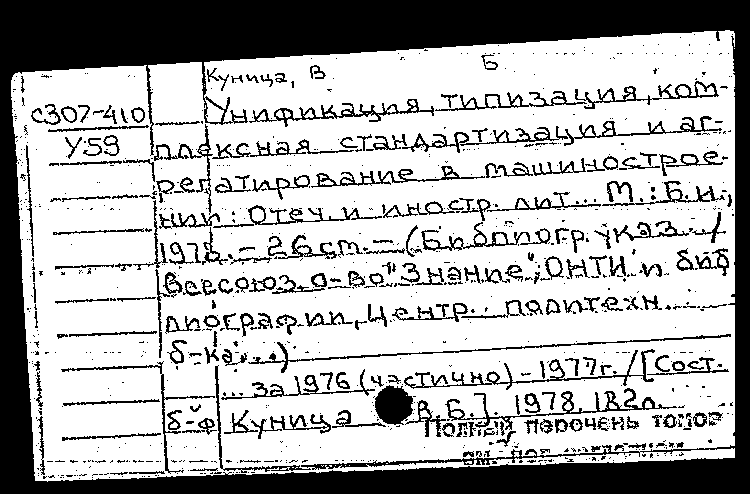 Куница, В Б
С307-410 Унификация, типизация, ком-
У59 плексная стандартизация и аг-
регатирование в машинострое-
нии: Отеч. и иностр. лит... М.: Б.и.,
1978. – 26 ст. – (Библиогр. указ../
Всесоюз. о-во "Знание"; ОНТИ и биб
лиографии, Центр. политехн...
б-ка...)
... за 1976 (частично) – 1977г. / [Сост.
б-ф Куница В.Б.]. 1978. 182л.
Полный перечень томов
см. под